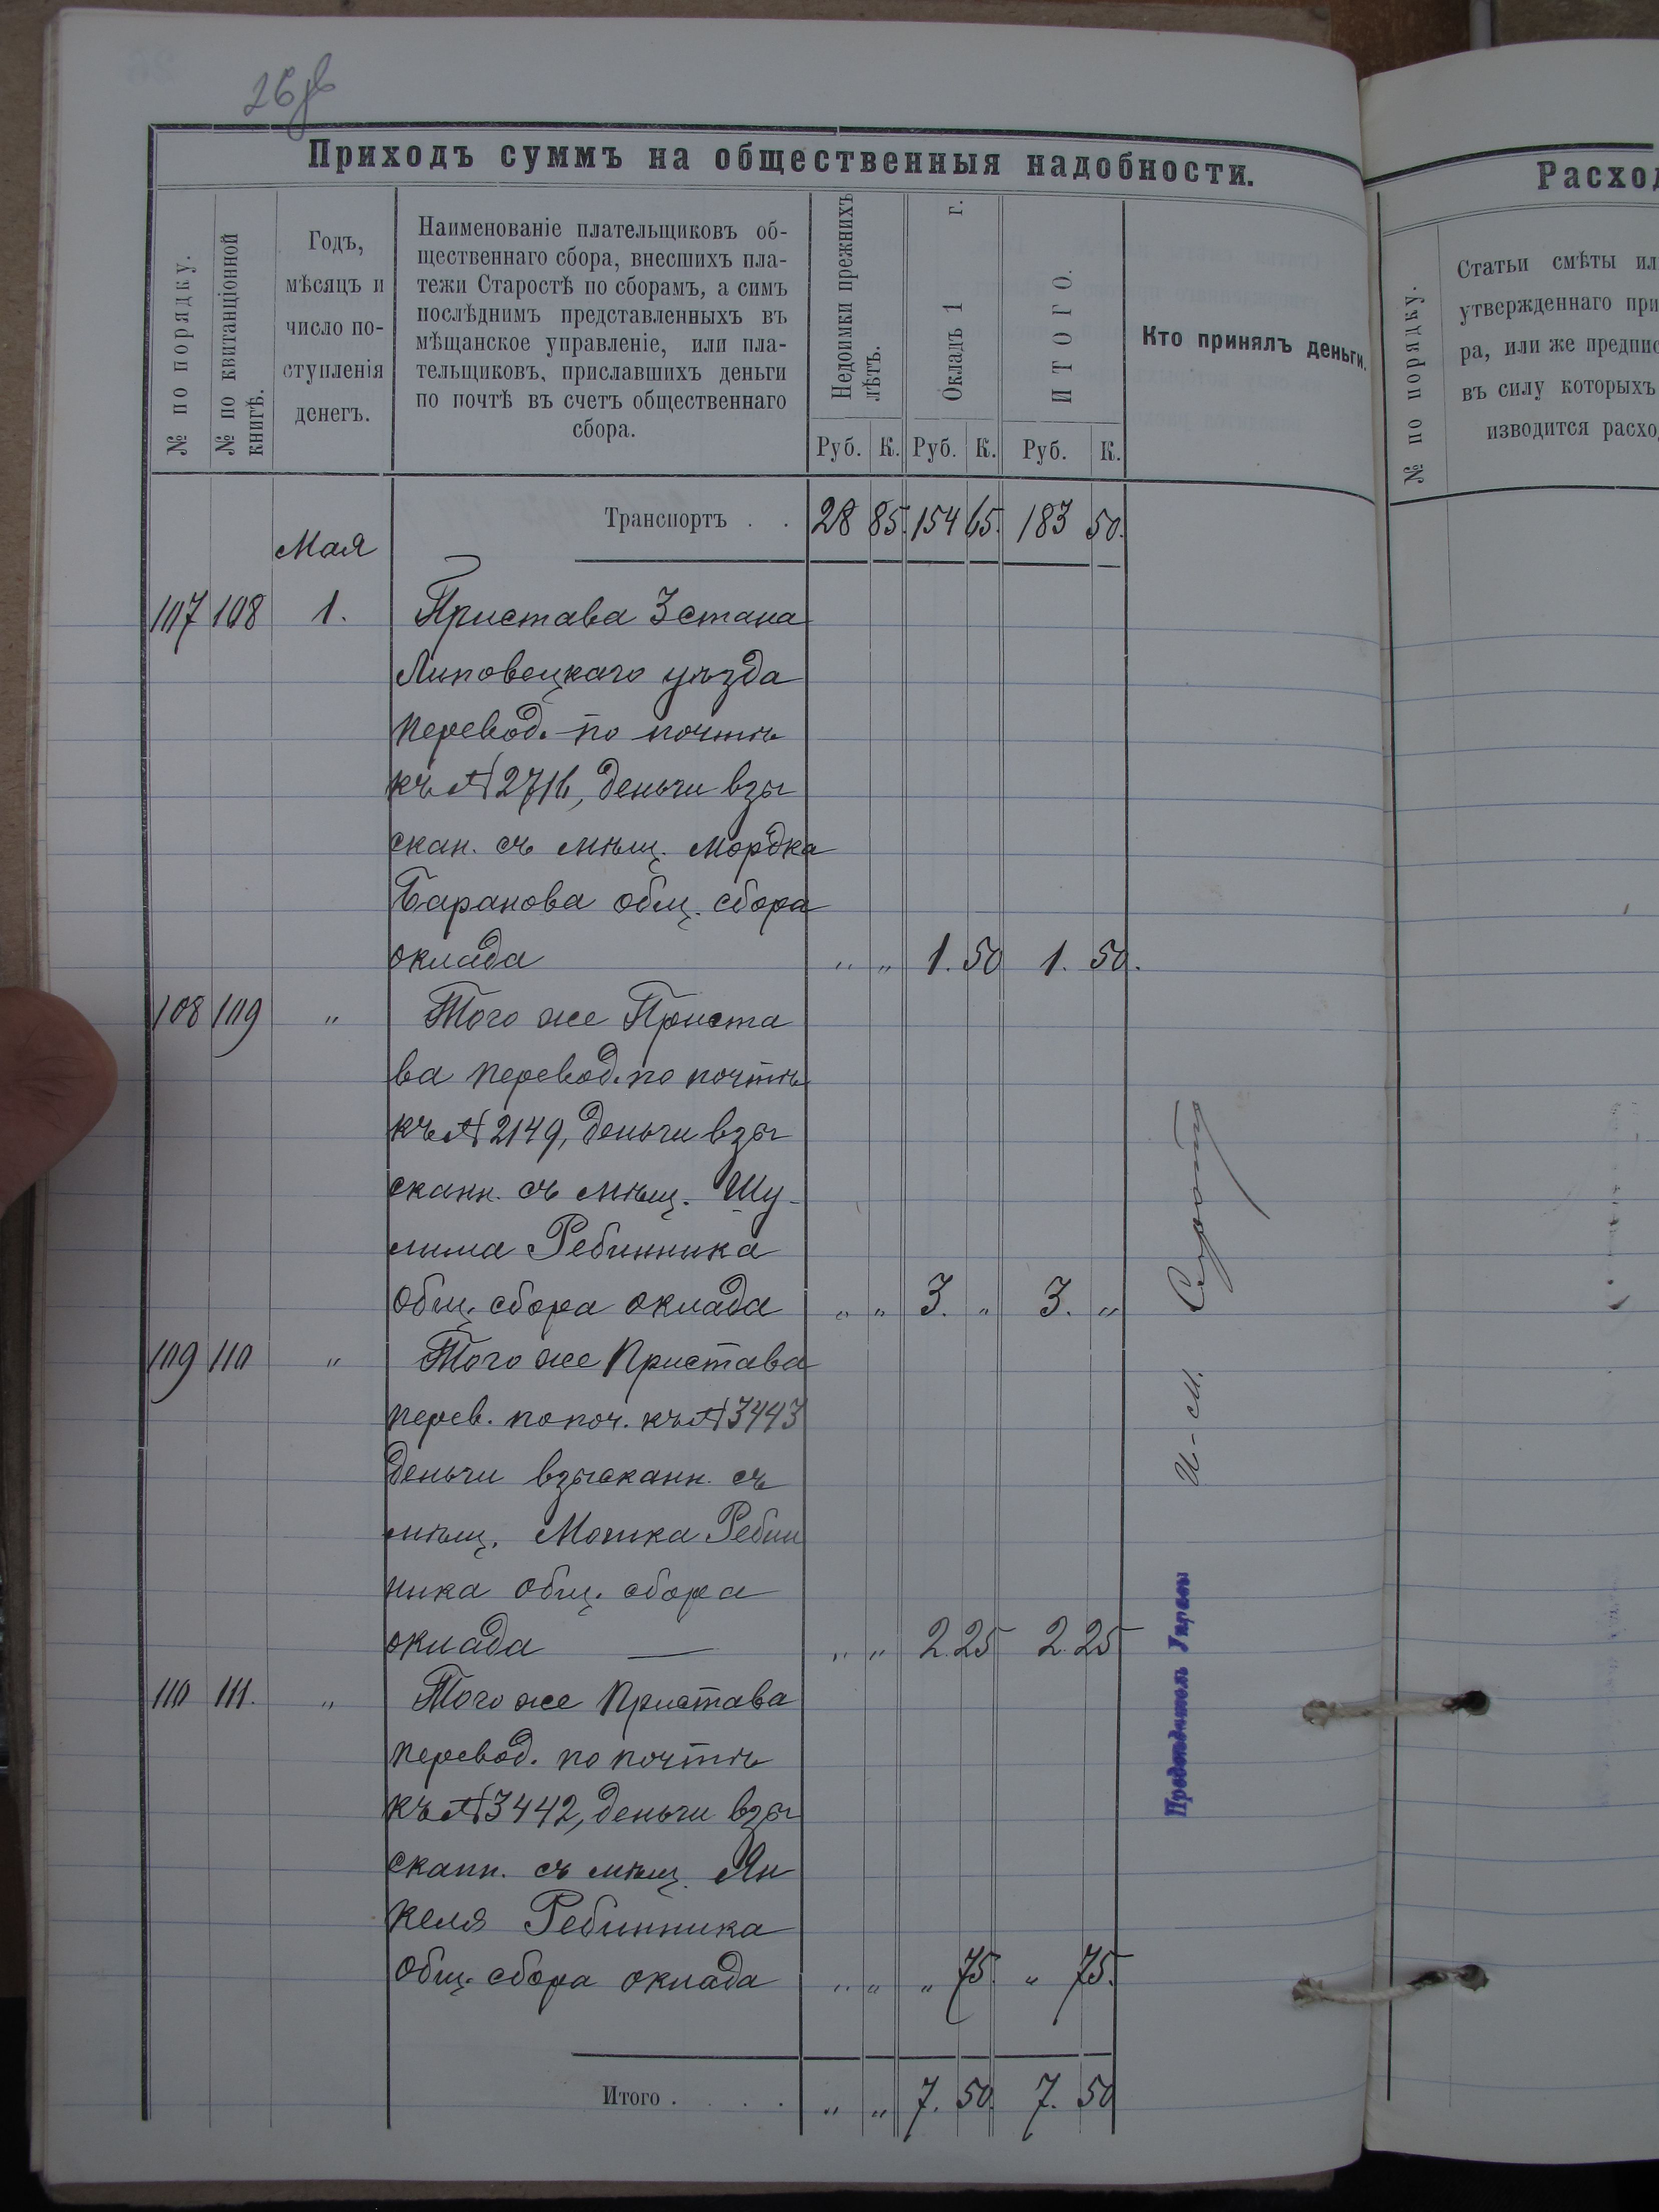 26
Приходъ суммъ на общественныя надобности.
№ по порядку.
№ по квитанціонной
книгѣ.
Годъ,
мѣсяцъ и
число по-
ступленія
денегъ.
Наименованіе плательщиковъ об-
щественнаго сбора, внесшихъ пла-
тежи Старостѣ по сборамъ, а симъ
послѣднимъ представленныхъ въ
мѣщанское управленіе, или пла-
тельщиковъ, приславшихъ деньги
по почтѣ въ счетъ общественнаго
сбора.
Недоимки прежнихъ
лѣтъ.
Окладъ 1 г.
ИТОГО.
Кто принялъ деньги.
Руб. К. Руб. К. Руб. К.
Транспортъ . . 28 85. 154 65. 183 50.
Мая
107 108 1. Пристава 3 стана
Липовецкаго уѣзда
перевод. по почтѣ
къ № 2716, деньги взы
скан. съ мѣщ. Мордка
Баранова общ. сбора
оклада " " 1. 50 1. 50.
108 109 " Того же Приста
ва перевод. по почтѣ
къ № 2149, деньги взы
сканн. съ мѣщ. Шу-
лима Ребинника
общ. сбора оклада " " 3. " 3. "
109 110 " Того же Пристава
перев. по поч. къ № 3443
деньги взысканн. съ
мѣщ. Мошка Ребин
ника общ. сбора
оклада — " " 2. 25 2. 25
110 111. " Того же Пристава
перевод. по почтѣ
къ № 3442, деньги взы
сканн. съ мѣщ. Ян
келя Ребинника
общ. сбора оклада " " " 75. " 75.
Итого . . . . " " 7. 50. 7. 50
Предсѣдатель Управы
И-м.
Расход
№ по порядку.
Статьи смѣты ил
утвержденнаго при
ра, или же предпис
въ силу которыхъ
изводится расхо